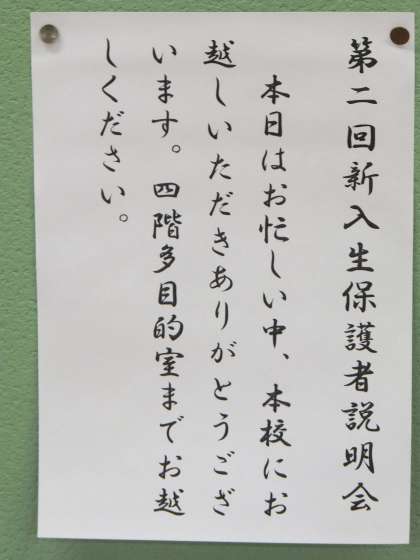 第二回新入生保護者説明会
本日はお忙しい中、本校にお
越しいただきありがとうござ
います。四階多目的室までお越
しください。